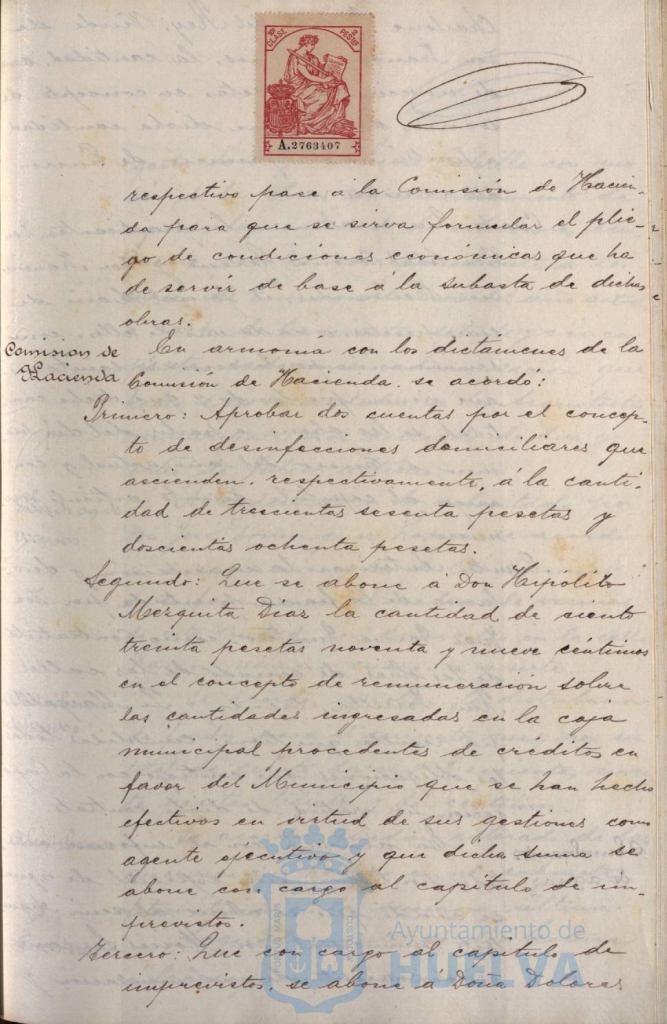 CLASE PESETAS
A.2763407
respectivo pase á la Comisión de Hacien-
da para que se sirva formular el plie-
go de condiciones económicas que ha
de servir de base á la subasta de dichas
obras.
Comision de
Hacienda
En armonía con los dictámenes de la
Comisión de Hacienda. se acordó:
Primero: Aprobar dos cuentas por el concep-
to de desinfecciones domiciliares que
ascienden. respectivamente, á la canti-
dad de trescientas sesenta pesetas y
doscientas ochenta pesetas.
Segundo: Que se abone á Don Hipólito
Mezquita Diaz la cantidad de ciento
treinta pesetas noventa y nueve céntimos
en el concepto de remuneración sobre
las cantidades ingresadas en la caja
municipal procedentes de créditos en
favor del Municipio que se han hecho
efectivos en virtud de sus gestiones como
agente ejecutivo y que dicha suma se
abone con cargo al capitulo de im-
previstos.
Tercero: Que con cargo al capitulo de
imprevistos. se abone á Doña Dolores
Ayuntamiento de
HUELVA